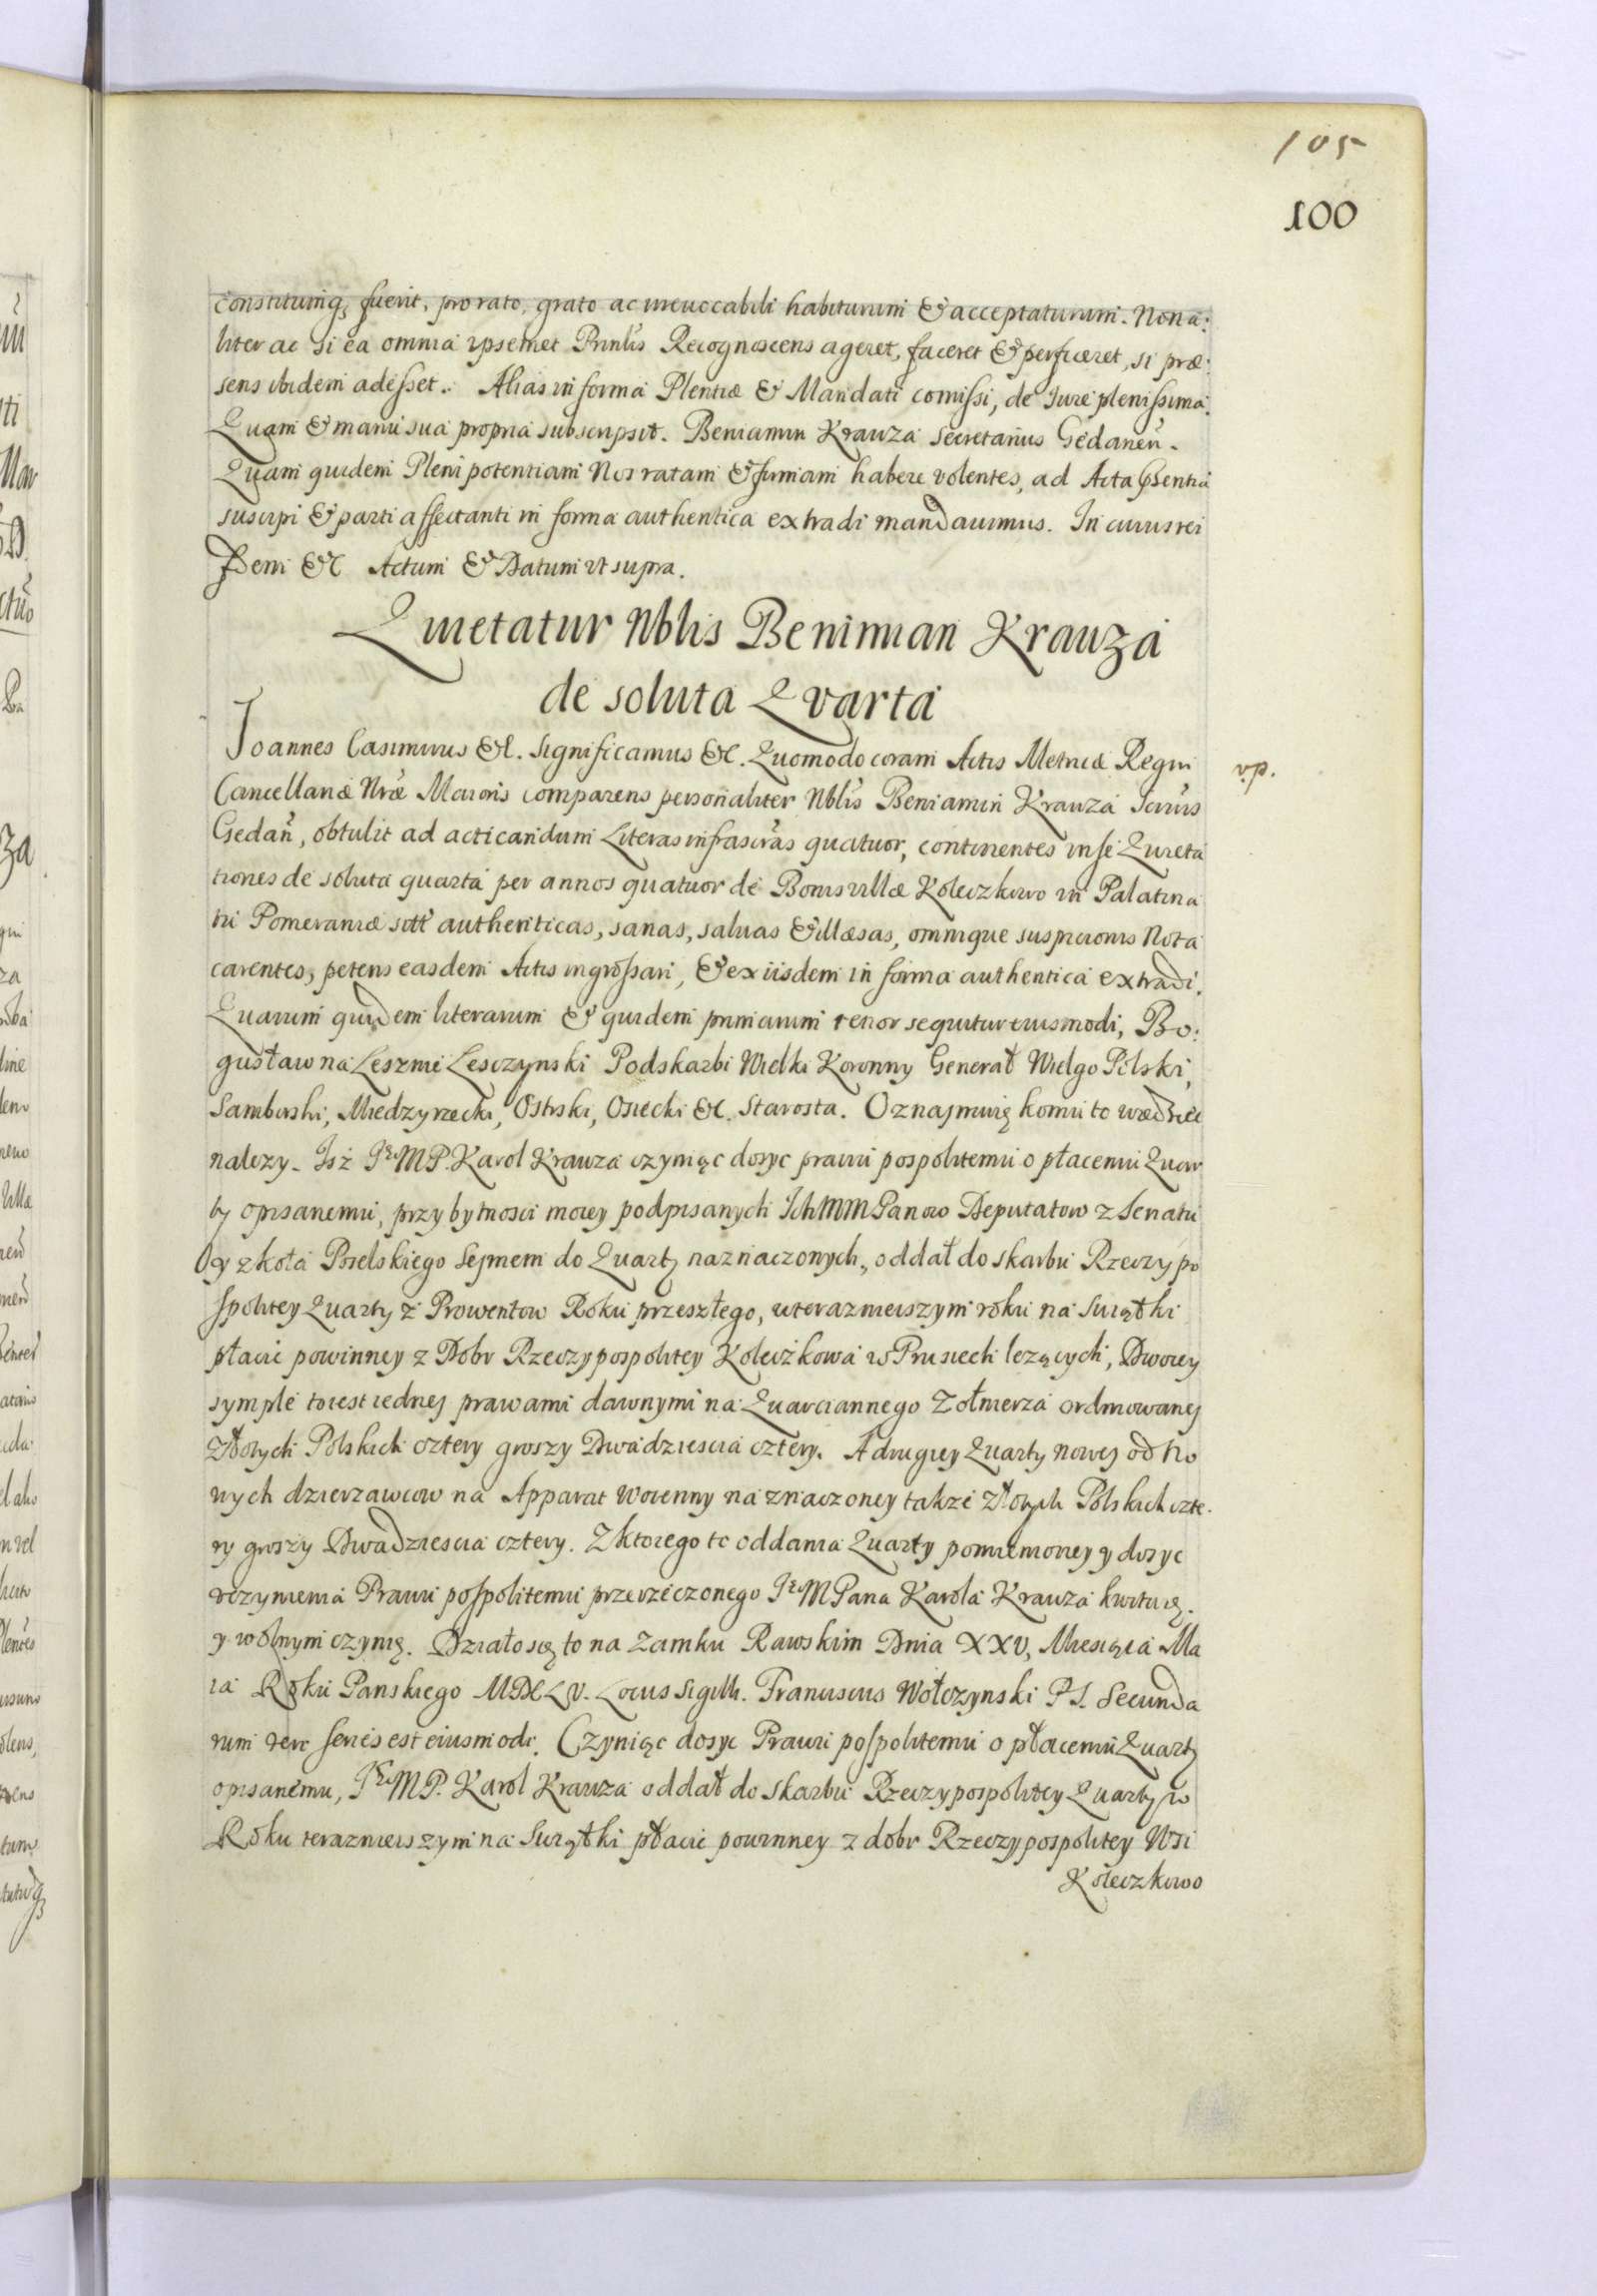 105
100
constitutinq́ fuerit, pro rato, grato ac irreuocabili habiturum & acceptaturum. Non a:
liter ac si ea omnia ipsemet Prinlis Recognoscens ageret, faceret & perficeret, si præ:
sens ibidem adesset. Alias in forma Plentiæ & Mandati comissi, de Jure plenissima.
Quam & manu sua propria subscripsit. Beniamin Krauza Secretarius Gedanen̄.
Quam quidem Plenipotentiam Nos ratam & firmam habere volentes, ad Acta pñsentia
suscipi & parti affectanti in forma authentica extradi mandauimus. In cuius rei
fidem &c Actum & Datum ut supra.
Quietatur Nblis Benimian Krauza
de soluta Quarta
Joannes Casimirus &c. Significamus &c. Quomodo coram Actis Metricæ Regni
v.p.
Cancellariæ Nræ Maioris comparens personaliter Nblis Beniamin Krauza Scrius
Gedan̄, obtulit ad acticandum Literas infrascras quatuor, continentes in se Quieta
tiones de soluta quarta per annos quatuor de Bonis villæ Koleczkowo in Palatina
tu Pomeraniæ sitt authenticas, sanas, saluas & illæsas, omnique suspicionis Nota
carentes, petens easdem Actis ingrossari, & ex iisdem in forma authentica extradi.
Quarum quidem literarum & quidem primarum tenor sequitur eiusmodi, Bo:
gusław na Lesznie Lesczynski Podskarbi Wielki Koronny Generał Wielgo Polski,
Samborski, Miedzyrzecki, Ostrski, Osiecki &c. Starosta. Oznajmuię komu to wiedziec
nalezy. Isz Je͠MP. Karol Krauza czyniąc dosyc prawu pospolitemu o płaceniu Quar
ty opisanemu, przy bytnosci moiey podpisanych IchMM Panow Deputatow z Senatu
y z koła Poselskiego Sejmem do Quarty naznaczonych, oddał do skarbu Rzeczy po
spolitey Quarty z Prowentow Roku przeszłego, w terazniejszym roku na Swiątki
płacic powinney z Dobr Rzeczypospolitey Koleczkowa w Prusiech lezących, Dwoiey
symple to iest iednej prawami dawnymi na Quarciannego Zołnierza ordinowanej
Złotych Polskich cztery groszy Dwadziescia cztery. A drugiey Quarty nowej od No
wych dzierzawcow na Apparat woienny naznaczoney takze złotych Polskich czte.
ry groszy Dwadziescia cztery. Z ktorego to oddania Quarty pomienioney y dosyc
vczynienia Prawu pospolitemu przerzeczonego Je͠M Pana Karola Krauza kwituię.
y wolnym czynię. Działo się to na Zamku Rawskim Dnia XXV, Miesiąca Ma
ia Roku Panskiego MDCLV. Locus Sigilli. Franciscus Wołczynski P.S. Secunda
rum vero series est eiusmodi. Czyniąc dosyc Prawu pospolitemu o płaceniu Quarty
opisanemu, Je͠MP. Karol Krauza oddał do skarbu Rzeczypospolitey Quarty w
Roku terazniejszym na Swiątki płacic powinney z dobr Rzeczypospolitey Wsi
Koleczkowo